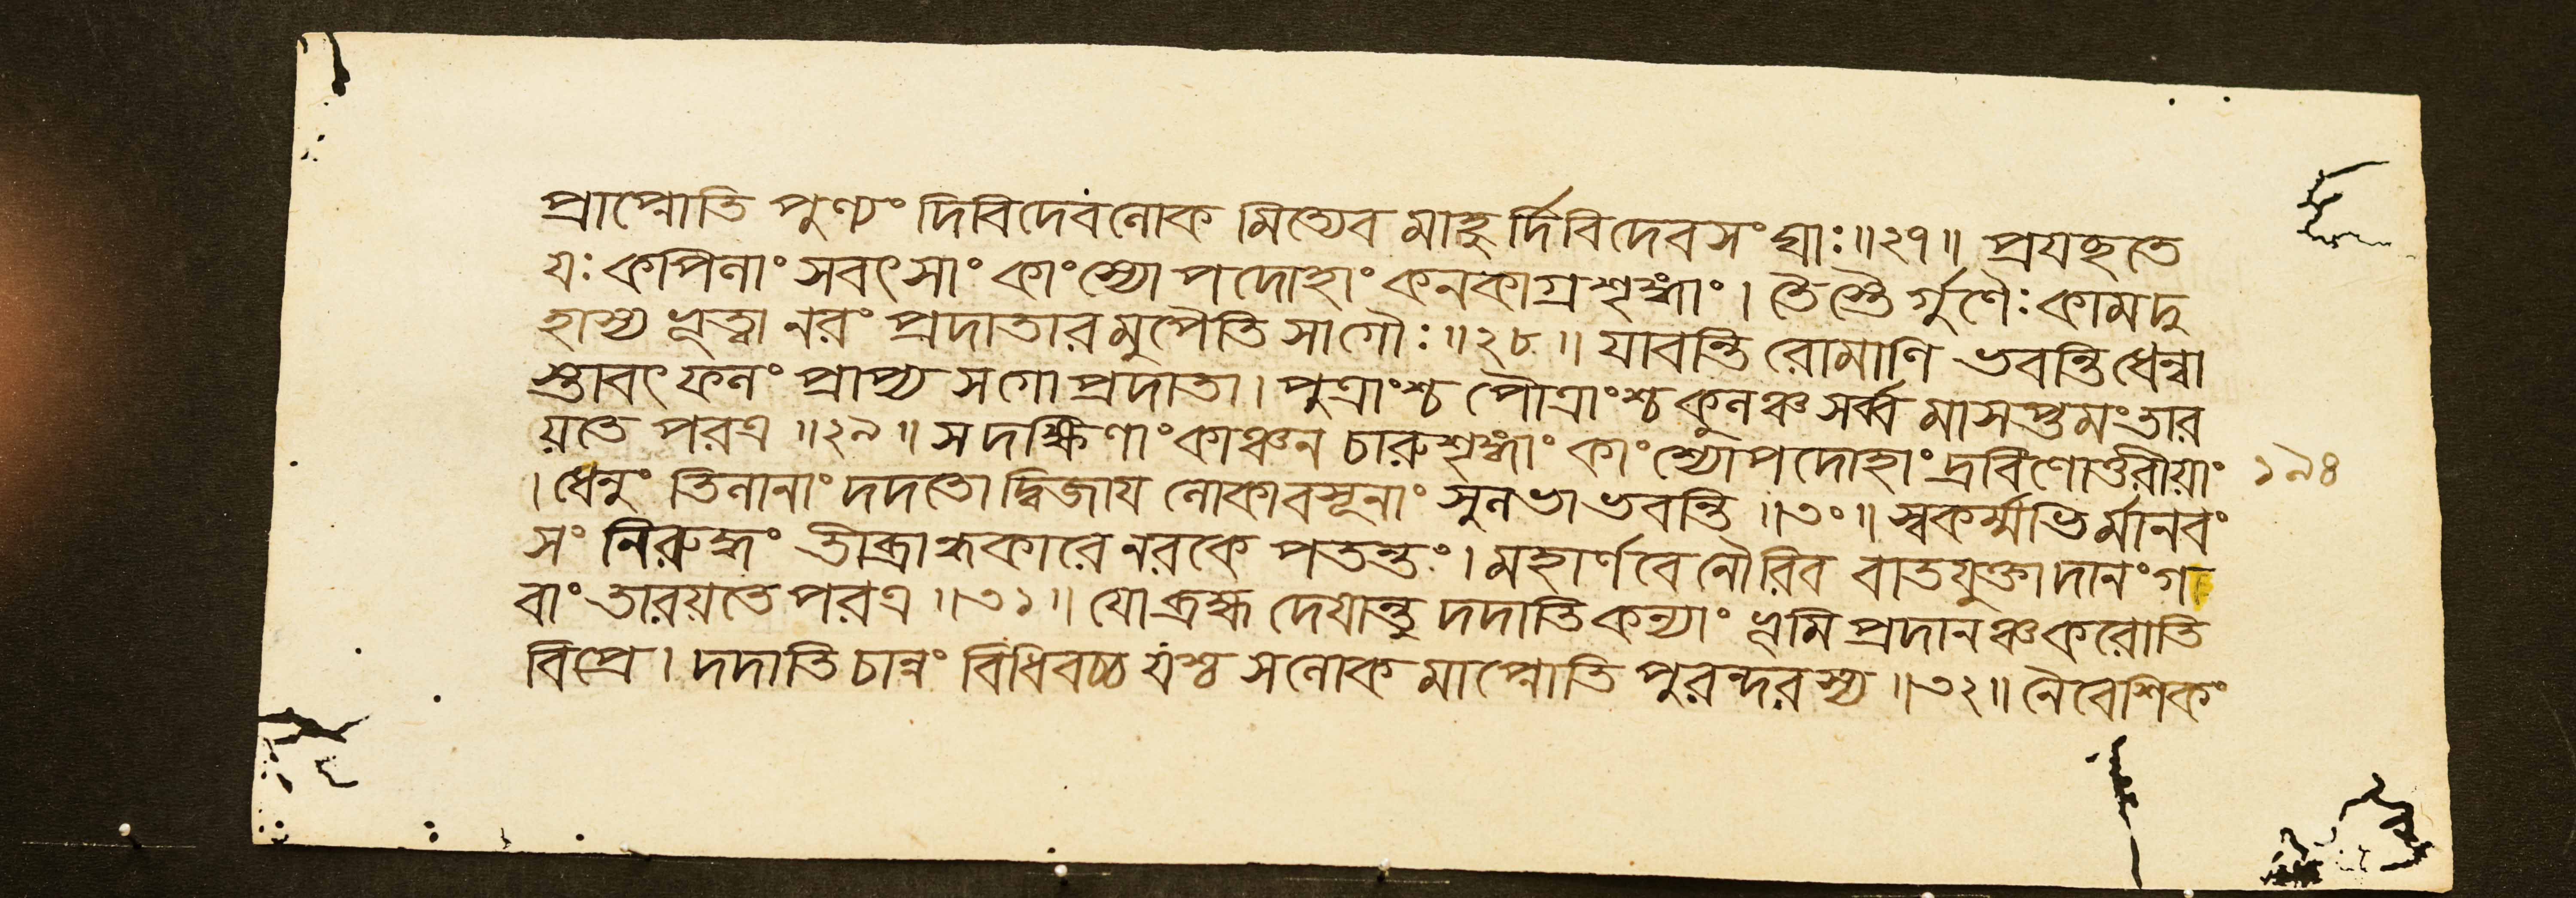 প্রাপ্নোতি পুণ্যং দিবিদেবলোক মিত্যেব মাহুর্দিবিদেবসংঘাঃ॥২৭॥ প্রযচ্ছতে
যঃ কপিলাং সবৎসাং কাংস্যোপদোহাং কনকাগ্রশৃঙ্গাং। তৈস্তৈর্গুণৈঃ কামদু
হাস্য ভূত্বা নরং প্রদাতারমুপৈতি সাগৌঃ॥২৮॥ যাবন্তি রোমাণি ভবন্তি ধেন্বা
স্তাবৎ ফলং প্রাপ্য সগোপ্রদাতা। পুত্রাংশ্চ পৌত্রাংশ্চ কুলঞ্চ সর্ব্ব মাসপ্তমংতার
য়তে পরত্র॥২৯॥ সদক্ষিণাং কাঞ্চন চারুশৃঙ্গাং কাংশ্যোপদোহাং দ্রবিণোত্তরীয়াং
। ধেনুং তিলানাং দদতো দ্বিজায লোকাবসূনাং সুলভাভবন্তি॥৩০॥ স্বকর্ম্মভির্মানবং
সং নিরুদ্ধং তীব্রান্ধকারে নরকে পতন্তং। মহার্ণবে নৌরিব বাতযুক্তা দানং গ
বাং তারয়তে পরত্র॥৩১॥ যো ব্রহ্ম দেযান্তু দদাতি কন্যাং ভূমি প্রদানঞ্চ করোতি
বিপ্রে। দদাতি চান্নং বিধিবচ্চ যশ্চ সলোক মাপ্নোতি পুরন্দরস্য॥৩২॥ নৈবেশিকং
১৯৪